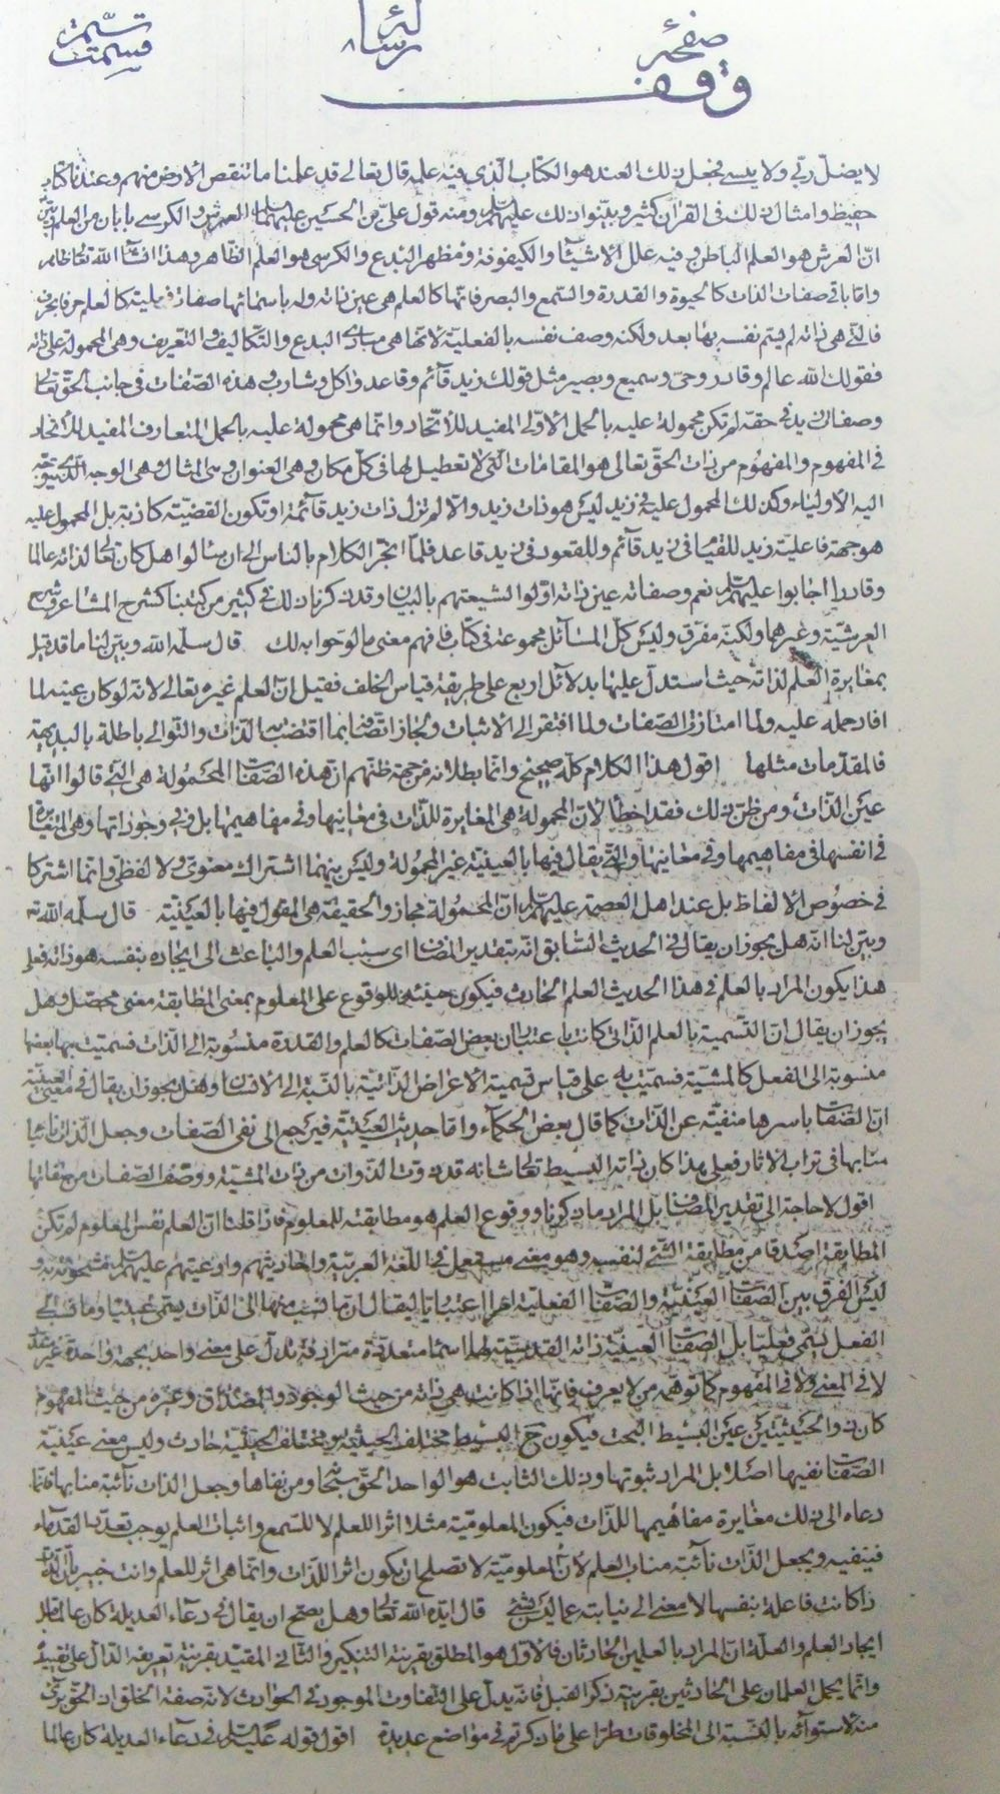 صفحة
وقف
لا يضل ربي ولا ينسى فجعل ذلك العند هو الكتاب الذي فيه علمه قال تعالى قد علمنا ما تنقص الارض منهم وعندنا كتاب
حفيظ وامثال ذلك في القرآن كثير وبينوا ذلك عليهم السلام ومنه قول علي بن الحسين عليهما السلام العرش والكرسي بابان من العلم
ان العرش هو العلم الباطن وفيه علل الاشياء والكيفوفة ومظهر البدع والكرسي هو العلم الظاهر وهذا انشاء الله تعالى ظاهر
واما باقي صفات الذات كالحيوة والقدرة والسمع والبصر فانها كالعلم هي عين ذاته وله باسمائها صفات فعلية كالعلم حرفا بحرف
فالتي هي ذاته لم يسم نفسه بها بعد ولكنه وصف نفسه بالفعلية لانها هي مبادي البدع والتكاليف والتعريف وهي المحمولة على ذاته
فقولك الله عالم وقادر وحي وسميع وبصير مثل قولك زيد قائم وقاعد واكل وشارب وهذه الصفات في جانب الحق تعالى
وصفات زيد في حقه لم تكن محمولة عليه بالحمل الاولي المفيد للاتحاد وانما هي محمولة عليه بالحمل المتعارف المفيد للاتحاد
في المفهوم والمفهوم من ذات الحق تعالى هو المقامات التي لا تعطيل لها في كل مكان وهي العنوان وهي المثال وهي الوجه الذي يتوجه
اليه الاولياء وكذلك المحمول عليه في زيد ليس هو ذات زيد والا لم تزل ذات زيد قائمة او تكون القضية كاذبة بل المحمول عليه
هو جهة فاعلية زيد للقيام في زيد قائم وللقعود في زيد قاعد فلما انجر الكلام بالناس الى ان سالوا هل كان تعالى لذاته عالما
وقادرا اجابوا عليهم السلام نعم وصفاته عين ذاته اولوا لشيعتهم بالبيان وقد ذكرنا ذلك في كثير من كتبنا كشرح المشاعر وشرح
العرشية وغيرهما ولكنه مفرق وليس كل المسائل مجموعة في كتاب فافهم معنى ما لوحوا به لك قال سلمه الله وبين لنا ما قد قيل
بمغايرة العلم لذاته حيث استدل عليها بدلائل اربع على طريقة قياس الخلف فقيل ان العلم غيره تعالى لانه لو كان عينه لما
افاد حمله عليه ولما امتازت الصفات ولما افتقر الى الاثبات ولجاز اتصافه بما اقتضت الذات والتوالي باطلة بالبديهة
فالمقدمات مثلها اقول هذا الكلام كله صحيح وانما بطلانه من جهة ظنهم ان هذه الصفات المحمولة هي التي قالوا انها
عين الذات ومن ظن ذلك فقد اخطأ لان المحمولة هي المغايرة للذات في معانيها وفي مفاهيمها بل وفي وجوداتها وهي المتغايرة
في انفسها في مفاهيمها وفي معانيها والتي يقال فيها بالعينية غير المحمولة وليس بينهما اشتراك معنوي ولا لفظي وانما اشتركا
في خصوص الالفاظ بل عند اهل العصمة عليهم السلام ان المحمولة مجاز والحقيقة هي المقول فيها بالعينية قال سلمه الله
وبين لنا انه هل يجوز ان يقال في الحديث السابق انه بتقدير المضاف اي سبب العلم والباعث الى ايجاده بنفسه هو ذاته فعلى
هذا يكون المراد بالعلم في هذا الحديث العلم الحادث فيكون حينئذ للوقوع على المعلوم بمعنى المطابقة معنى محصل وهل
يجوز ان يقال ان التسمية بالعلم الذاتي كانت باعتبار ان بعض الصفات كالعلم والقدرة منسوبة الى الذات فسميت بها بعضها
منسوبة الى الفعل كالمشية فسميت به على قياس تسمية الاعراض الذاتية بالنسبة الى الانسان وهل يجوز ان يقال في معنى العينية
ان الصفات باسرها منفية عن الذات كما قال بعض الحكماء واما حديث العينية فيرجع الى نفي الصفات وجعل الذات نائبا
منابها في ترتب الاثار فعلى هذا كان ذاته البسيط تعالى شانه قد ذوت الذوات من ذات المشية ووصف الصفات من صفاتها
اقول لا حاجة الى تقدير المضاف بل المراد ما ذكرنا ووقوع العلم هو مطابقته للمعلوم فاذا قلنا ان العلم نفس المعلوم لم تكن
المطابقة اصدق من مطابقة الشئ لنفسه وهو معنى مستعمل في اللغة العربية واحاديثهم وادعيتهم عليهم السلام مشحونة به و
ليس الفرق بين الصفات العينية والصفات الفعلية امرا اعتباريا ليقال ان ما نسب منها الى الذات يسمى عينيا وما نسب الى
الفعل يسمى فعليا بل الصفات العينية ذاته القديمة لها اسماء متعددة مترادفة تدل على معنى واحد بجهة واحدة غير متعددة
لا في المعنى ولا في المفهوم كما توهمه من لا يعرف فانها اذا كانت هي ذاته من حيث الوجود والمصداق وغيره من حيث المفهوم
كان ذو الحيثيتين عين البسيط البحت فيكون ح البسيط مختلف الحيثية ومختلف الحيثية حادث وليس معنى عينية
الصفات نفيها اصلا بل المراد ثبوتها وذلك الثابت هو الواحد الحق سبحانه ومن نفاها وجعل الذات نائبة منابها فانما
دعاه الى ذلك مغايرة مفاهيمها للذات فيكون المعلومية مثلا اثرا للعلم لا للسمع واثبات العلم يوجب تعدد القدماء
فينفيه ويجعل الذات نائبة مناب العلم لان المعلومية لا تصلح ان تكون اثرا للذات وانما هي اثر للعلم وانت خبير بان الذات
اذا كانت فاعلة بنفسها لا معنى الى نيابته عما ليس شئ قال ايده الله تعالى وهل يصح ان يقال في دعاء العديلة كان عالما قبل
ايجاد العلم والعلة ان المراد بالعلمين الحادثان فالاول هو المطلق بقرينة التنكير والثاني المقيد بقرينة تعريفه الدال على تقييده
وانما يحمل العلمان على الحادثين بقرينة ذكر القبل فانه يدل على التفاوت الموجود في الحوادث لانه صفة الخلق ان الحق برئ
منه لاستوائه بالنسبة الى المخلوقات طرا على ما ذكرتم في مواضع عديدة اقول قوله عليه السلام في دعاء العديلة كان عالما